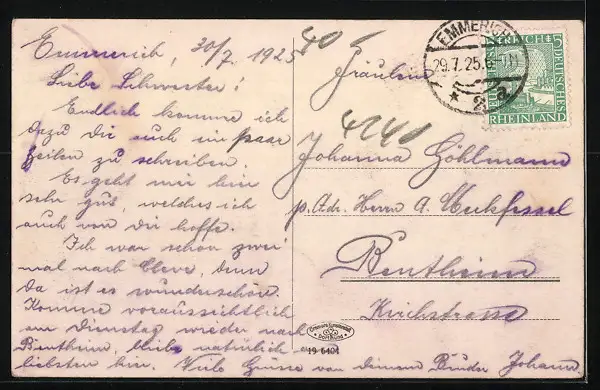 Emmerich, 30/7 1925
Liebe Schwester!
Endlich komme ich
dazu Dir auch ein paar
Zeilen zu schreiben.
Es geht mir hier
sehr gut, welches ich
auch von Dir hoffe.
Ich war schon zwei
mal nach Cleve, denn
da ist es wunderschön.
Komme voraussichtlich
am Dienstag wieder nach
Bentheim, bleibe natürlich am
liebsten hier. Viele Grüsse von deinem Bruder Johann
40
4240
Fräulein
Johanna Göhlmann
p. Adr. Herrn A. Meckfessel
Bentheim
Kirchstrasse
EMMERICH
29.7.25.
* 2 a
DEUTSCHES REICH
5
RHEINLAND
19 6404